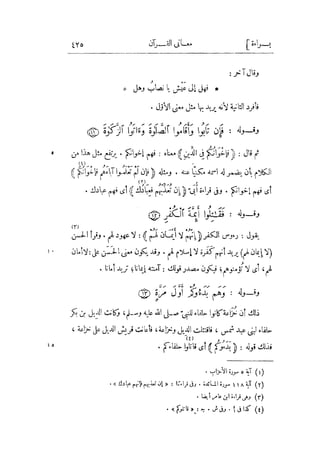 براءة ] معانى القـرآن ٤٢٥
وقال آخر :
* فهل إلى عَيْش يا نصابُ وهل *
فأفرد الثانية لأنه يريد بها مثل معنى الأوّل .
وقـوله : فَإِن تَابُوا وَأَقَامُوا ٱلصَّلَوٰةَ وَءَاتَوُا ٱلزَّكَوٰةَ ﴿١١﴾
ثم قال : ﴿ فَإِخْوَانُكُمْ فِى الدِّينِ ﴾ معناه : فهم إخوانكم . يرتفع مثل هذا من ٥
الكلام بأن يضمر له اسمه مكنيًّا عنه . ومثله ﴿ فإِن لم تَعْلَمُوا آباءَهُم فَإِخْوَانُكُمْ ﴾
أى فهم إخوانكم . وفى قراءة أُبىّ ﴿ إِن تُعَذِّبْهُمْ فَعِبَادُكَ ﴾ أى فهم عبادك .
وقـوله : فَقَـٰتِلُوٓا أَئِمَّةَ ٱلْكُفْرِ ﴿١٢﴾
يقول : رءوس الكفر ﴿ إِنَّهُمْ لَا أَيْمَـٰنَ لَهُمْ ﴾ : لا عهود لهم . وقرأ الحسن (٣)
( لا إيمان لهم ) يريد أنهم كَفَرة لا إسلام لهم . وقد يكون معنى الحسن على : لا أمان ١٠
لهم ، أى لا تؤمنوهم ؛ فيكون مصدر قولك : آمنته إيمانا ؛ تريد أمانا .
وقـوله : وَهُم بَدَءُوكُمْ أَوَّلَ مَرَّةٍ ﴿١٣﴾
ذلك أن خُزَاعة كانوا حلفاء للنبىّ صلى الله عليه وسلم ، وكانت الديل بن بكر
حلفاء لبنى عبد شمس ، فاقتتلت الديل وخزاعة ، فأعانت قريش الديل على خزاعة ،
فذلك قوله : ﴿ بَدَءُوكُمْ ﴾ أى قاتلوا (٤) حلفاءكم . ١٥
(١) آية ٥ سورة الأحزاب .
(٢) آية ١١٨ سورة المائدة . وفى قراءتنا : « إن تعذبهم فإنهم عبادك » .
(٣) وهى قراءة ابن عامر أيضا .
(٤) كذا فى أ . وفى ش ، ج : « قاتلوكم » .